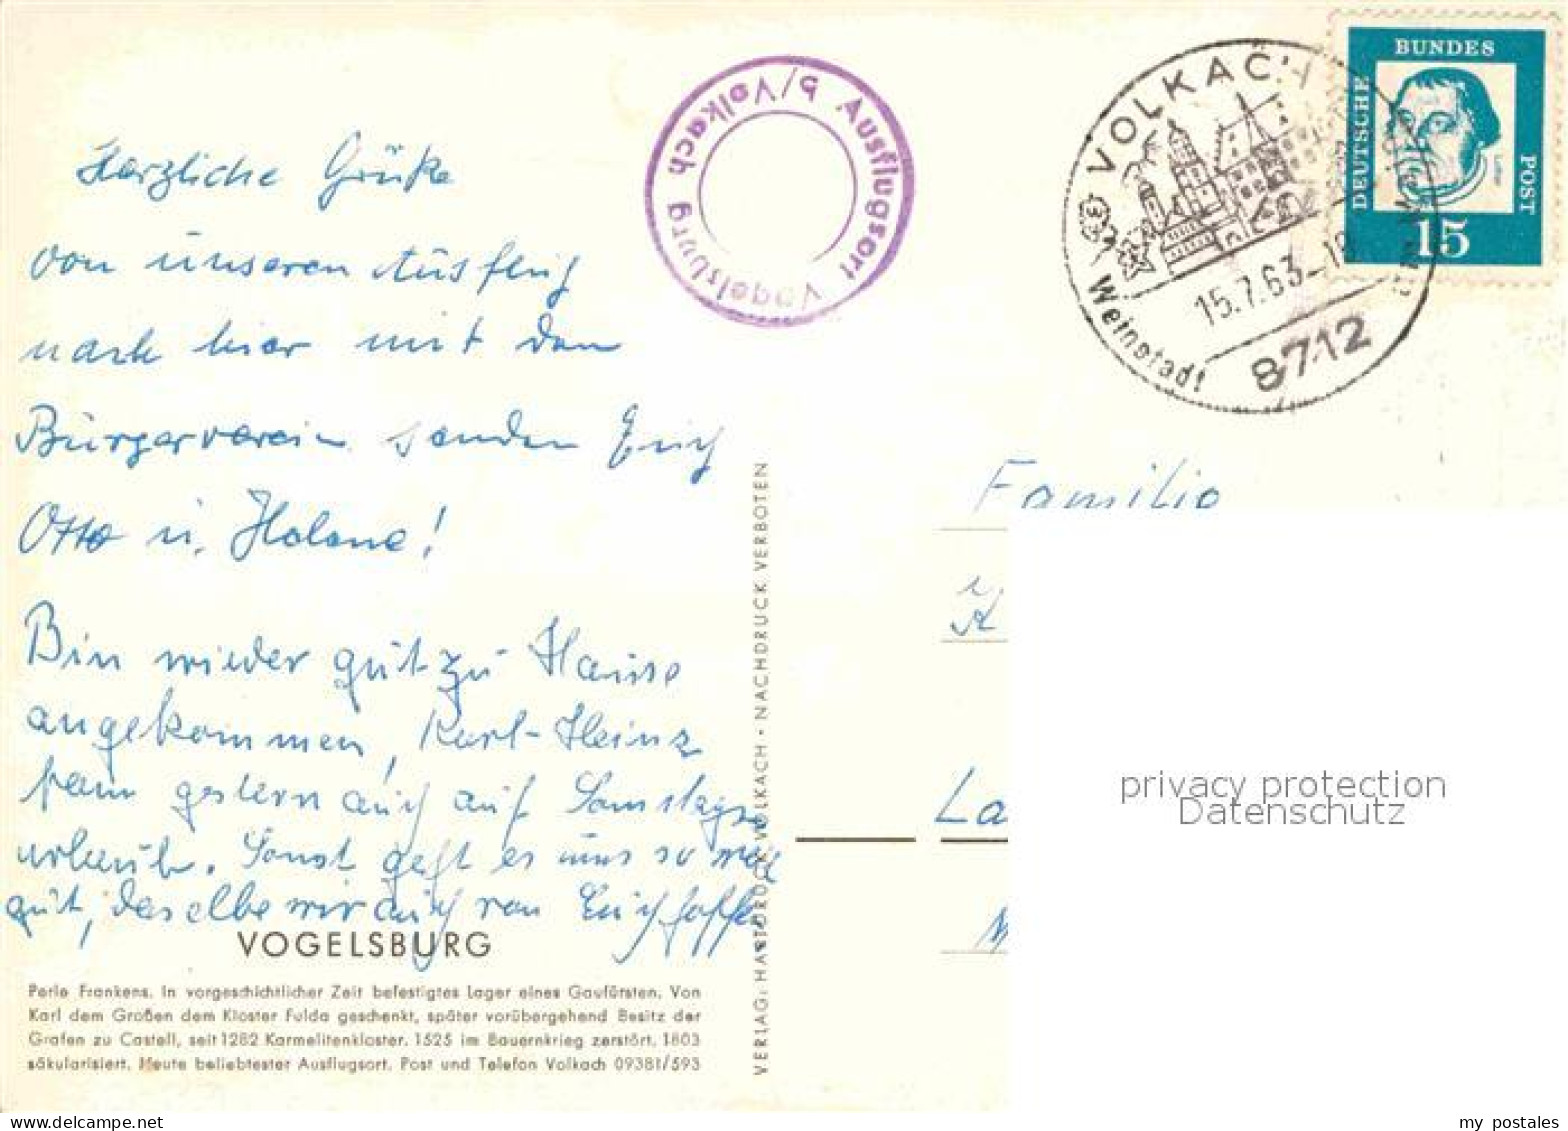 Herzliche Grüße
von unseren Ausflug
nach hier mit dem
Bürgerverein senden Erich
Otto u. Helene!
Bin wieder gut zu Hause
angekommen, Karl-Heinz
kam gestern auch auf Samstags
urlaub. Sonst geht es uns so weit
gut, dasselbe wir auch von Euch hoffen
VOGELSBURG
Perle Frankens. In vorgeschichtlicher Zeit befestigtes Lager eines Gaufürsten. Von
Karl dem Großen dem Kloster Fulda geschenkt, später vorübergehend Besitz der
Grafen zu Castell, seit 1282 Karmelitenkloster. 1525 im Bauernkrieg zerstört. 1803
säkularisiert. Heute beliebtester Ausflugsort. Post und Telefon Volkach 09381/593
VERLAG: HARTDRUCK VOLKACH • NACHDRUCK VERBOTEN
Ausflugsort Vogelsburg b/Volkach
VOLKACH
15.7.63-18
Weinstadt
8712
DEUTSCHE
BUNDES
POST
15
Familie
La
privacy protection
Datenschutz
my postales